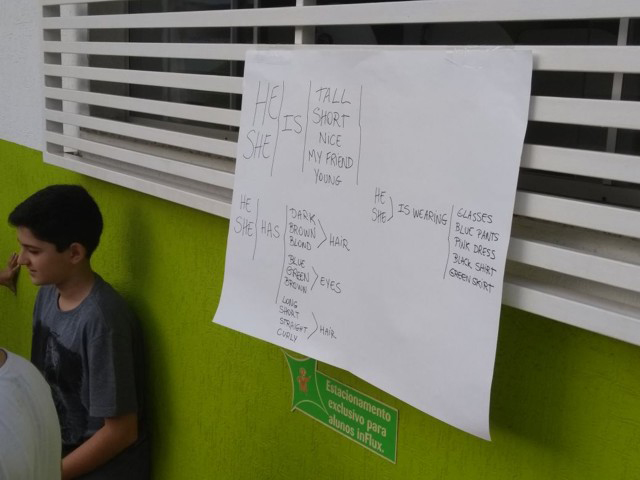 HE
SHE
IS
TALL
SHORT
NICE
MY FRIEND
YOUNG
HE
SHE
HAS
DARK
BROWN
BLOND
HAIR
BLUE
GREEN
BROWN
EYES
LONG
SHORT
STRAIGHT
CURLY
HAIR
HE
SHE
IS WEARING
GLASSES
BLUE PANTS
PINK DRESS
BLACK SHIRT
GREEN SKIRT
Estacionamento
exclusivo para
alunos inFlux.